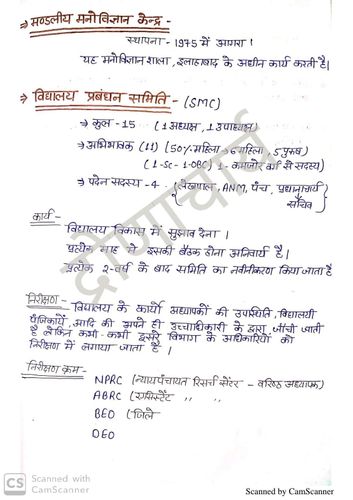 → मण्डलीय मनोविज्ञान केन्द्र -
स्थापना - 1975 में आगरा ।
यह मनोविज्ञान शाला, इलाहाबाद के अधीन कार्य करती है।
→ विद्यालय प्रबंधन समिति - (SMC)
→ कुल - 15 (1 अध्यक्ष, 1 उपाध्यक्ष)
→ अभिभावक (11) (50% महिला → 6 महिला, 5 पुरूष)
(1-SC-1-OBC) 1- कमजोर वर्ग से सदस्य)
→ पदेन सदस्य - 4 (लेखपाल, ANM, पंच, प्रधानाचार्य
सचिव)
कार्य -
विद्यालय विकास में सुझाव देना ।
प्रत्येक माह में इसकी बैठक होना अनिवार्य है।
प्रत्येक 2-वर्ष के बाद समिति का नवीनीकरण किया जाता है
निरीक्षण - विद्यालय के कार्यों अध्यापकों की उपस्थिति, विद्यालयी
पंजिकायें, आदि की अपने ही उच्चाधिकारी के द्वारा जाँची जाती
है लेकिन कभी-कभी दूसरे विभाग के अधिकारियों को
निरीक्षण में लगाया जाता है ।
निरीक्षण क्रम -
NPRC (न्यायपंचायत रिसर्च सेंटर - वरिष्ठ अध्यापक)
ABRC (असिस्टेंट " "
BEO (जिले
DEO
द्रोणाचार्य
CS Scanned with
CamScanner
Scanned by CamScanner